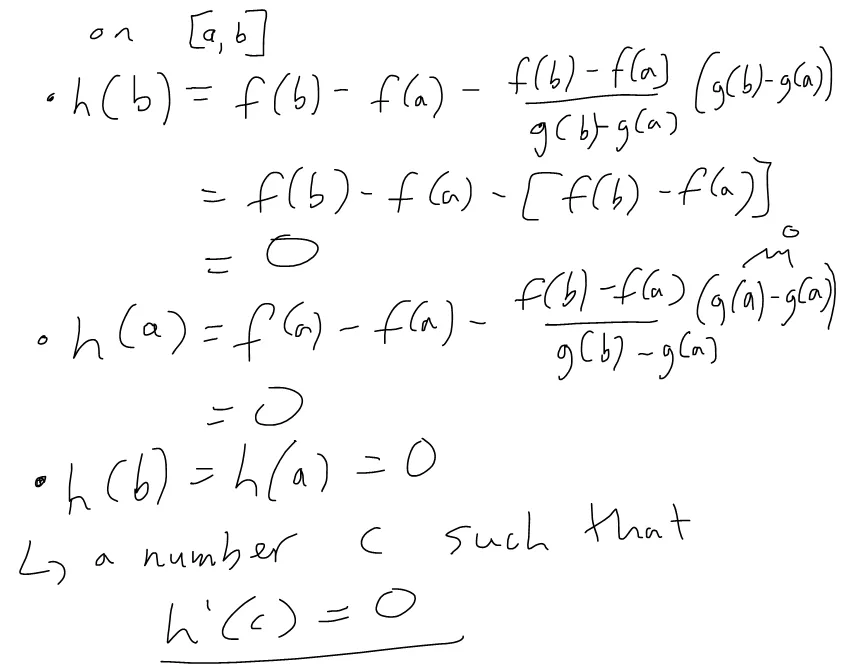 on [a, b]
• h(b) = f(b) - f(a) - \frac{f(b) - f(a)}{g(b) - g(a)} (g(b) - g(a))
= f(b) - f(a) - [f(b) - f(a)]
= 0
• h(a) = f(a) - f(a) - \frac{f(b) - f(a)}{g(b) - g(a)} \overbrace{(g(a) - g(a))}^{0}
= 0
• h(b) = h(a) = 0
↳ a number c such that
h'(c) = 0